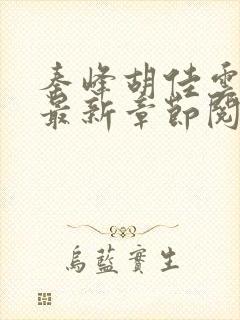 秦峰胡佳雲
最新章節閱
烏藍實生